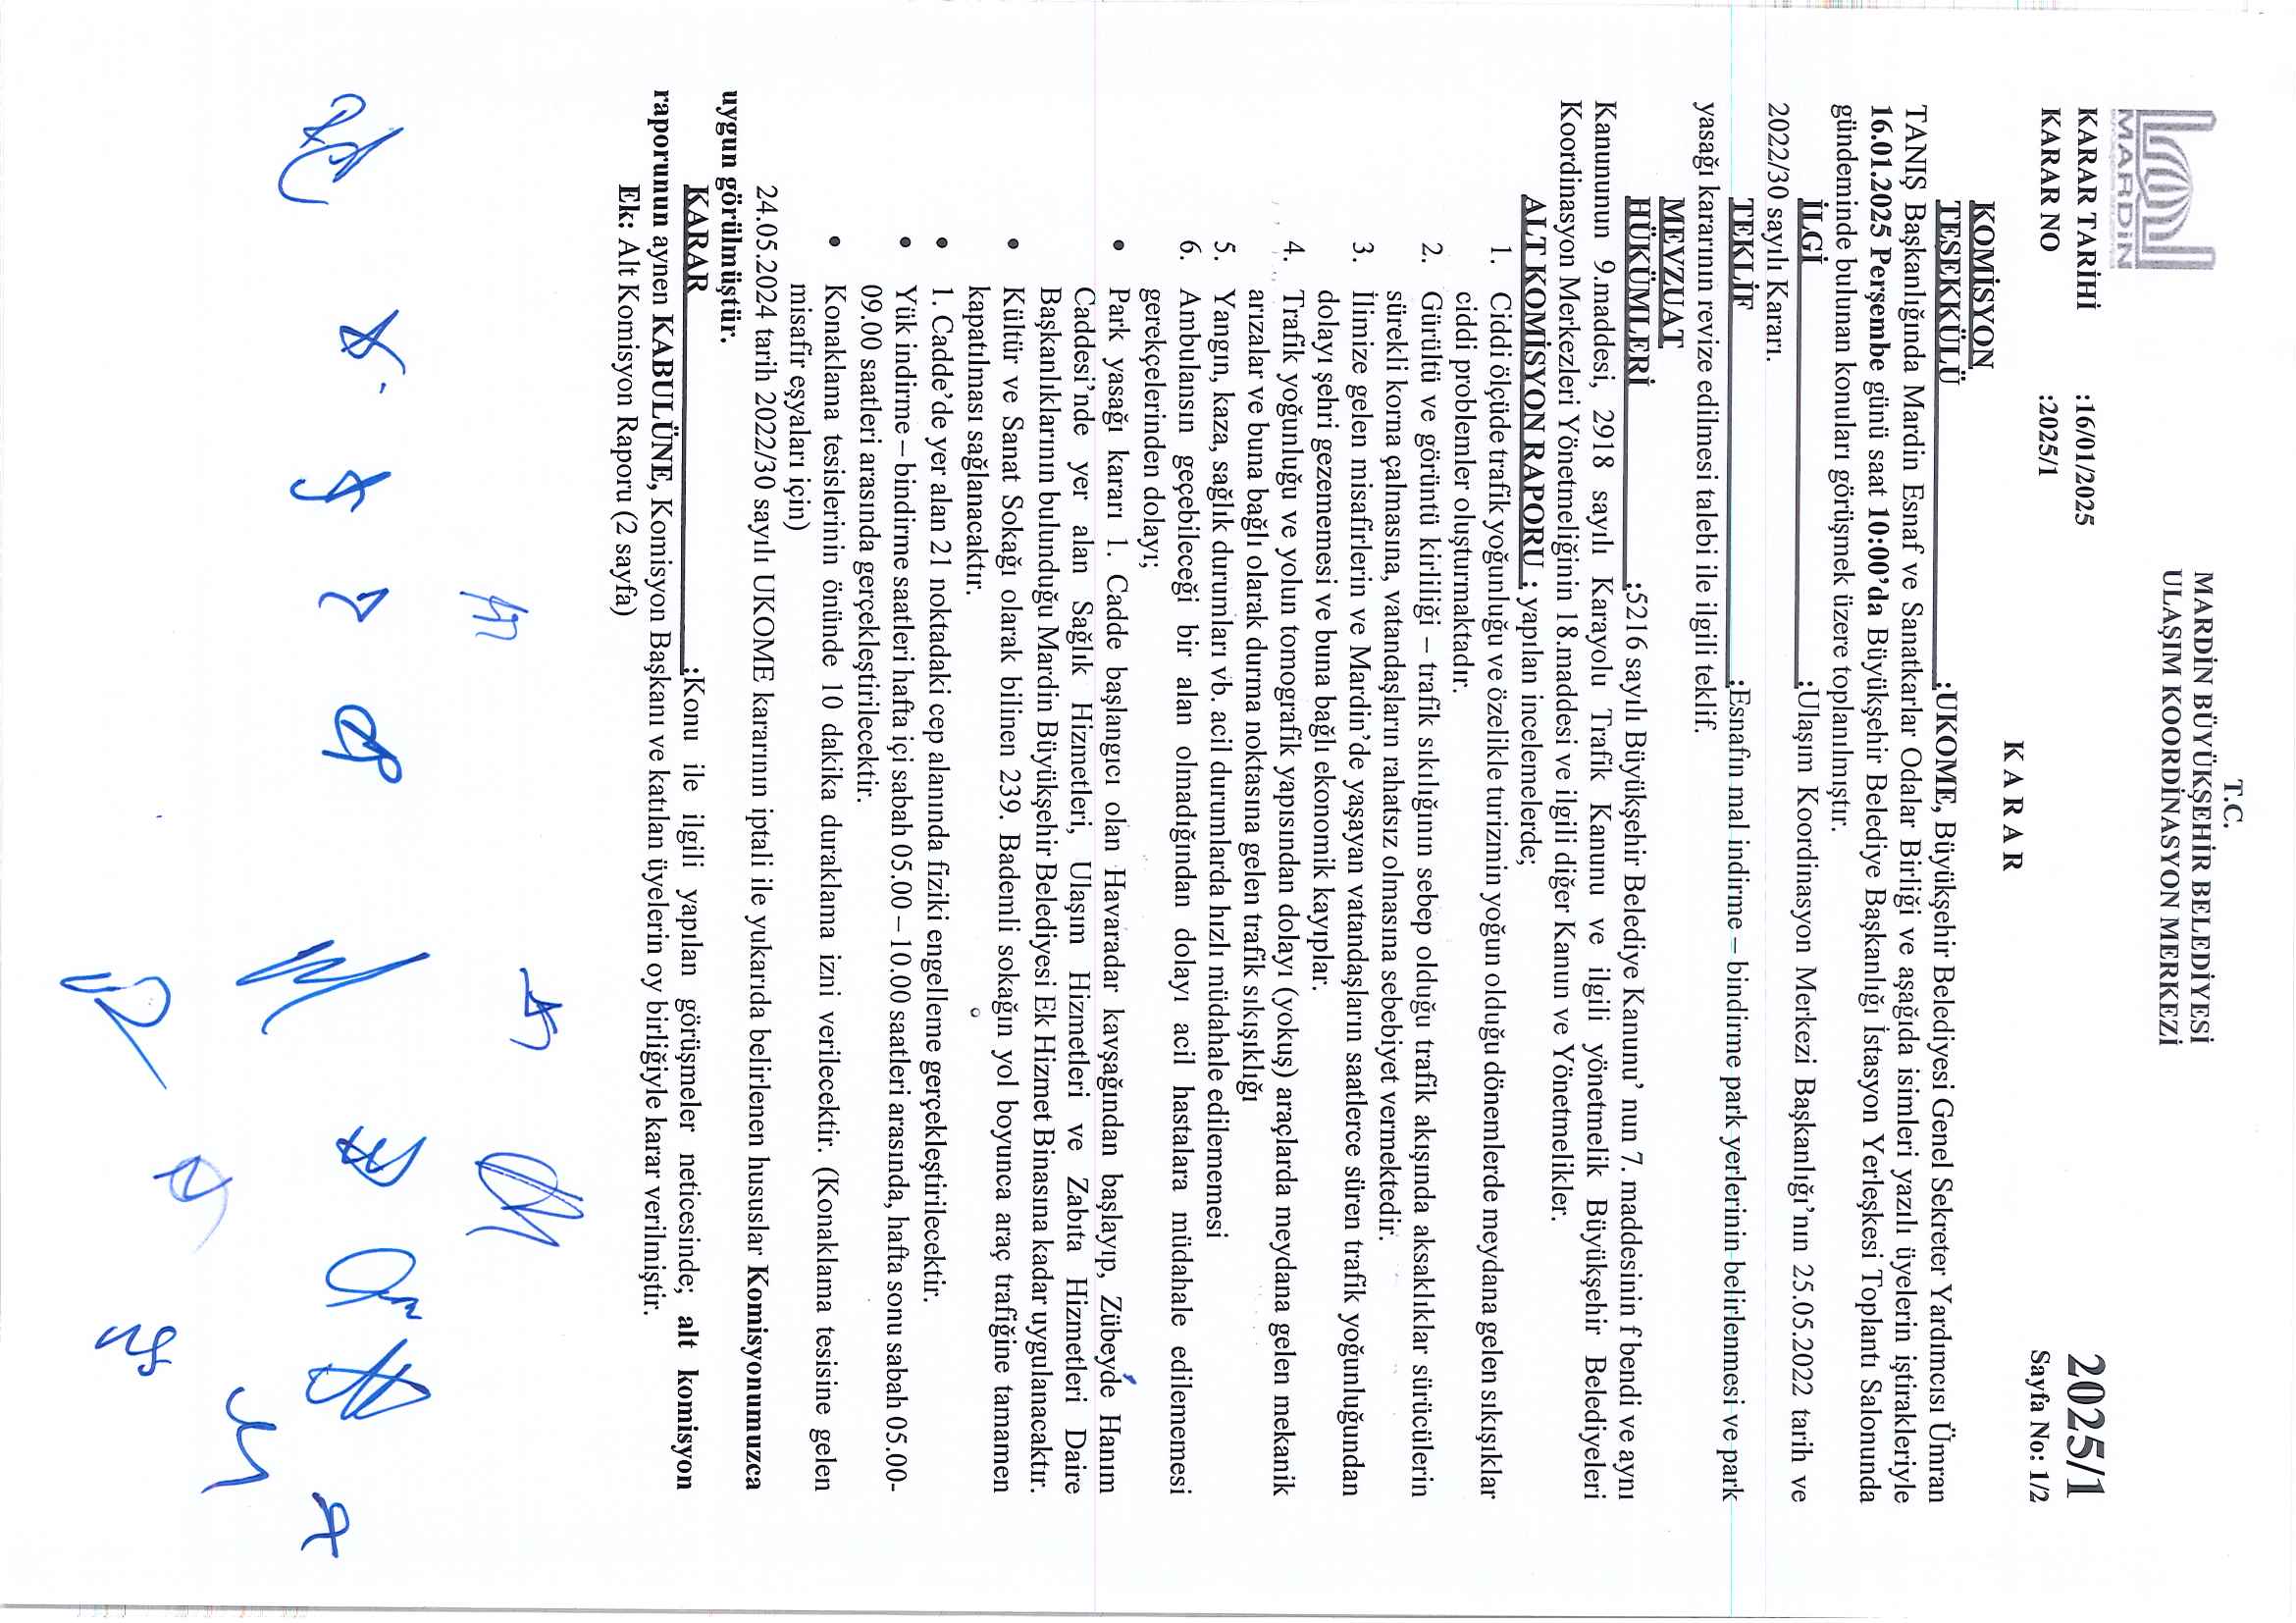 T.C.
MARDİN BÜYÜKŞEHİR BELEDİYESİ
ULAŞIM KOORDİNASYON MERKEZİ
MARDİN
2025/1
Sayfa No: 1/2
KARAR TARİHİ :16/01/2025
KARAR NO :2025/1
K A R A R
KOMİSYON
TEŞEKKÜLÜ :UKOME, Büyükşehir Belediyesi Genel Sekreter Yardımcısı Ümran
TANIŞ Başkanlığında Mardin Esnaf ve Sanatkarlar Odalar Birliği ve aşağıda isimleri yazılı üyelerin iştirakleriyle
16.01.2025 Perşembe günü saat 10:00’da Büyükşehir Belediye Başkanlığı İstasyon Yerleşkesi Toplantı Salonunda
gündeminde bulunan konuları görüşmek üzere toplanılmıştır.
İLGİ :Ulaşım Koordinasyon Merkezi Başkanlığı’nın 25.05.2022 tarih ve
2022/30 sayılı Kararı.
TEKLİF :Esnafın mal indirme – bindirme park yerlerinin belirlenmesi ve park
yasağı kararının revize edilmesi talebi ile ilgili teklif.
MEVZUAT
HÜKÜMLERİ :5216 sayılı Büyükşehir Belediye Kanunu’ nun 7. maddesinin f bendi ve aynı
Kanununun 9.maddesi, 2918 sayılı Karayolu Trafik Kanunu ve ilgili yönetmelik Büyükşehir Belediyeleri
Koordinasyon Merkezleri Yönetmeliğinin 18.maddesi ve ilgili diğer Kanun ve Yönetmelikler.
ALT KOMİSYON RAPORU : yapılan incelemelerde;
1. Ciddi ölçüde trafik yoğunluğu ve özelikle turizmin yoğun olduğu dönemlerde meydana gelen sıkışıklar
ciddi problemler oluşturmaktadır.
2. Gürültü ve görüntü kirliliği – trafik sıkılığının sebep olduğu trafik akışında aksaklıklar sürücülerin
sürekli korna çalmasına, vatandaşların rahatsız olmasına sebebiyet vermektedir.
3. İlimize gelen misafirlerin ve Mardin’de yaşayan vatandaşların saatlerce süren trafik yoğunluğundan
dolayı şehri gezememesi ve buna bağlı ekonomik kayıplar.
4. Trafik yoğunluğu ve yolun tomografik yapısından dolayı (yokuş) araçlarda meydana gelen mekanik
arızalar ve buna bağlı olarak durma noktasına gelen trafik sıkışıklığı
5. Yangın, kaza, sağlık durumları vb. acil durumlarda hızlı müdahale edilememesi
6. Ambulansın geçebileceği bir alan olmadığından dolayı acil hastalara müdahale edilememesi
gerekçelerinden dolayı;
• Park yasağı kararı 1. Cadde başlangıcı olan Havaradar kavşağından başlayıp, Zübeyde Hanım
Caddesi’nde yer alan Sağlık Hizmetleri, Ulaşım Hizmetleri ve Zabıta Hizmetleri Daire
Başkanlıklarının bulunduğu Mardin Büyükşehir Belediyesi Ek Hizmet Binasına kadar uygulanacaktır.
• Kültür ve Sanat Sokağı olarak bilinen 239. Bademli sokağın yol boyunca araç trafiğine tamamen
kapatılması sağlanacaktır.
• 1. Cadde’de yer alan 21 noktadaki cep alanında fiziki engelleme gerçekleştirilecektir.
• Yük indirme – bindirme saatleri hafta içi sabah 05.00 – 10.00 saatleri arasında, hafta sonu sabah 05.00-
09.00 saatleri arasında gerçekleştirilecektir.
• Konaklama tesislerinin önünde 10 dakika duraklama izni verilecektir. (Konaklama tesisine gelen
misafir eşyaları için)
24.05.2024 tarih 2022/30 sayılı UKOME kararının iptali ile yukarıda belirlenen hususlar Komisyonumuzca
uygun görülmüştür.
KARAR :Konu ile ilgili yapılan görüşmeler neticesinde; alt komisyon
raporunun aynen KABULÜNE, Komisyon Başkanı ve katılan üyelerin oy birliğiyle karar verilmiştir.
Ek: Alt Komisyon Raporu (2 sayfa)